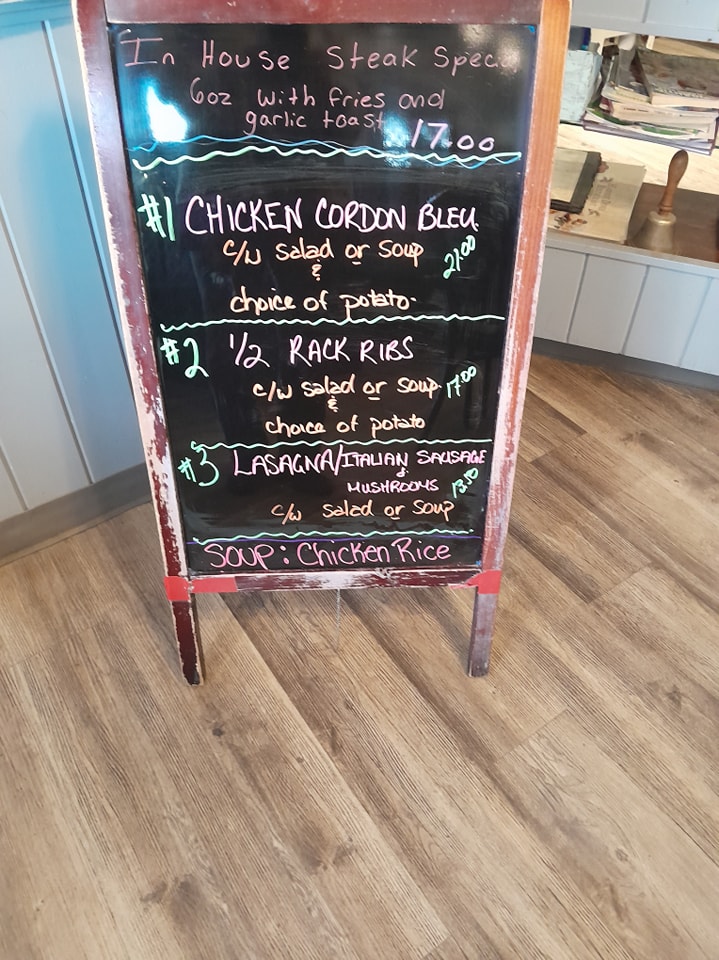 In House Steak Special
6oz with fries and
garlic toast 17.00
#1 CHICKEN CORDON BLEU.
c/w salad or soup 21.00
&
choice of potato.
#2 1/2 RACK RIBS
c/w salad or soup. 17.00
&
choice of potato
#3 LASAGNA/ITALIAN SAUSAGE
&
MUSHROOMS 13.50
c/w salad or soup
SOUP: Chicken Rice